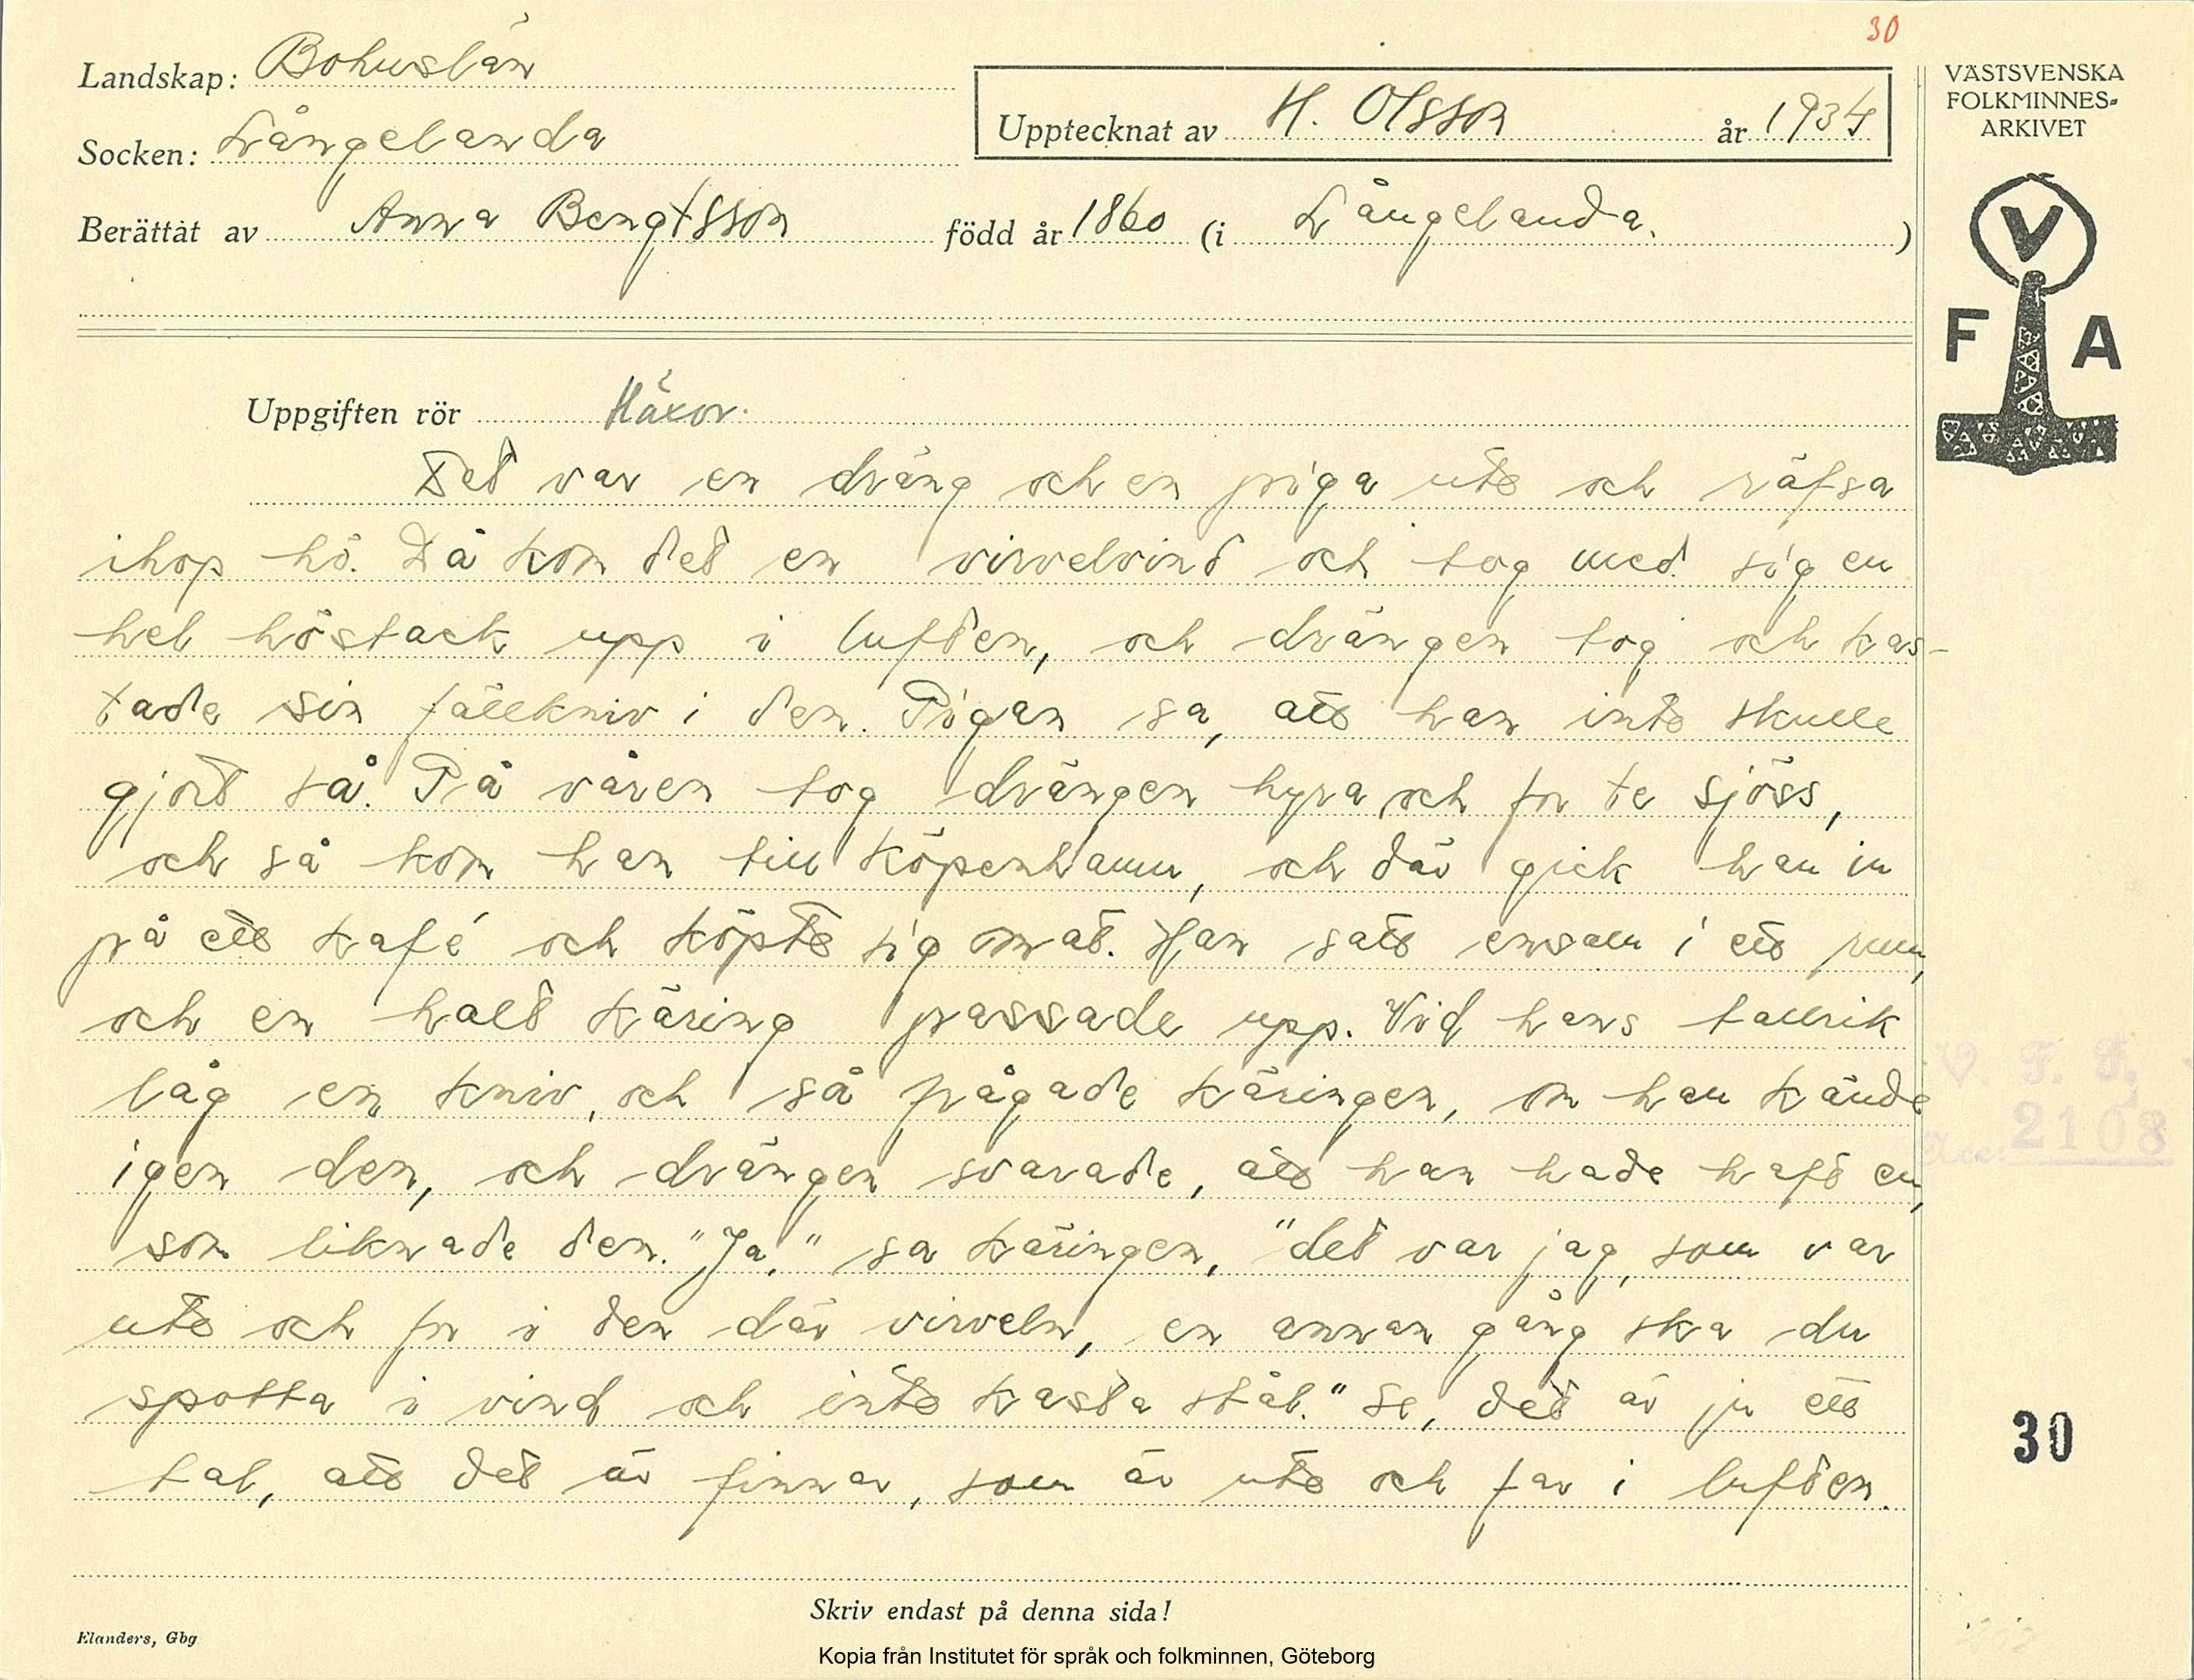 30
Landskap: Bohuslän
Socken: Långelanda
Upptecknat av H. Olsson år 1934
Berättat av Anna Bengtsson född år 1860 (i Långelanda.)
VÄSTSVENSKA
FOLKMINNES-
ARKIVET
V
F A
Uppgiften rör Häxor.
Det var en dräng och en piga ute och räfsa
ihop hö. Då kom det en virvelvind och tog med sig en
hel höstack upp i luften, och drängen tog och kas-
tade sin fällkniv i den. Pigan sa, att han inte skulle
gjort så. På våren tog drängen hyra och for te sjöss,
och så kom han till Köpenhamn, och där gick han in
på ett kafé och köpte sig mat. Han satt ensam i ett rum,
och en halt käring passade upp. Vid hans tallrik
låg en kniv, och så frågade käringen, om han kände
igen den, och drängen svarade, att han hade haft en,
som liknade den. "Ja," sa käringen, "det var jag, som var
ute och for i den där virveln, en annan gång ska du
spotta i vind och inte kasta stål." Se, det är ju ett
tal, att det är finnar, som är ute och far i luften.
V. F. F.
Acc: 2108
30
Skriv endast på denna sida!
Elanders, Gbg
Kopia från Institutet för språk och folkminnen, Göteborg